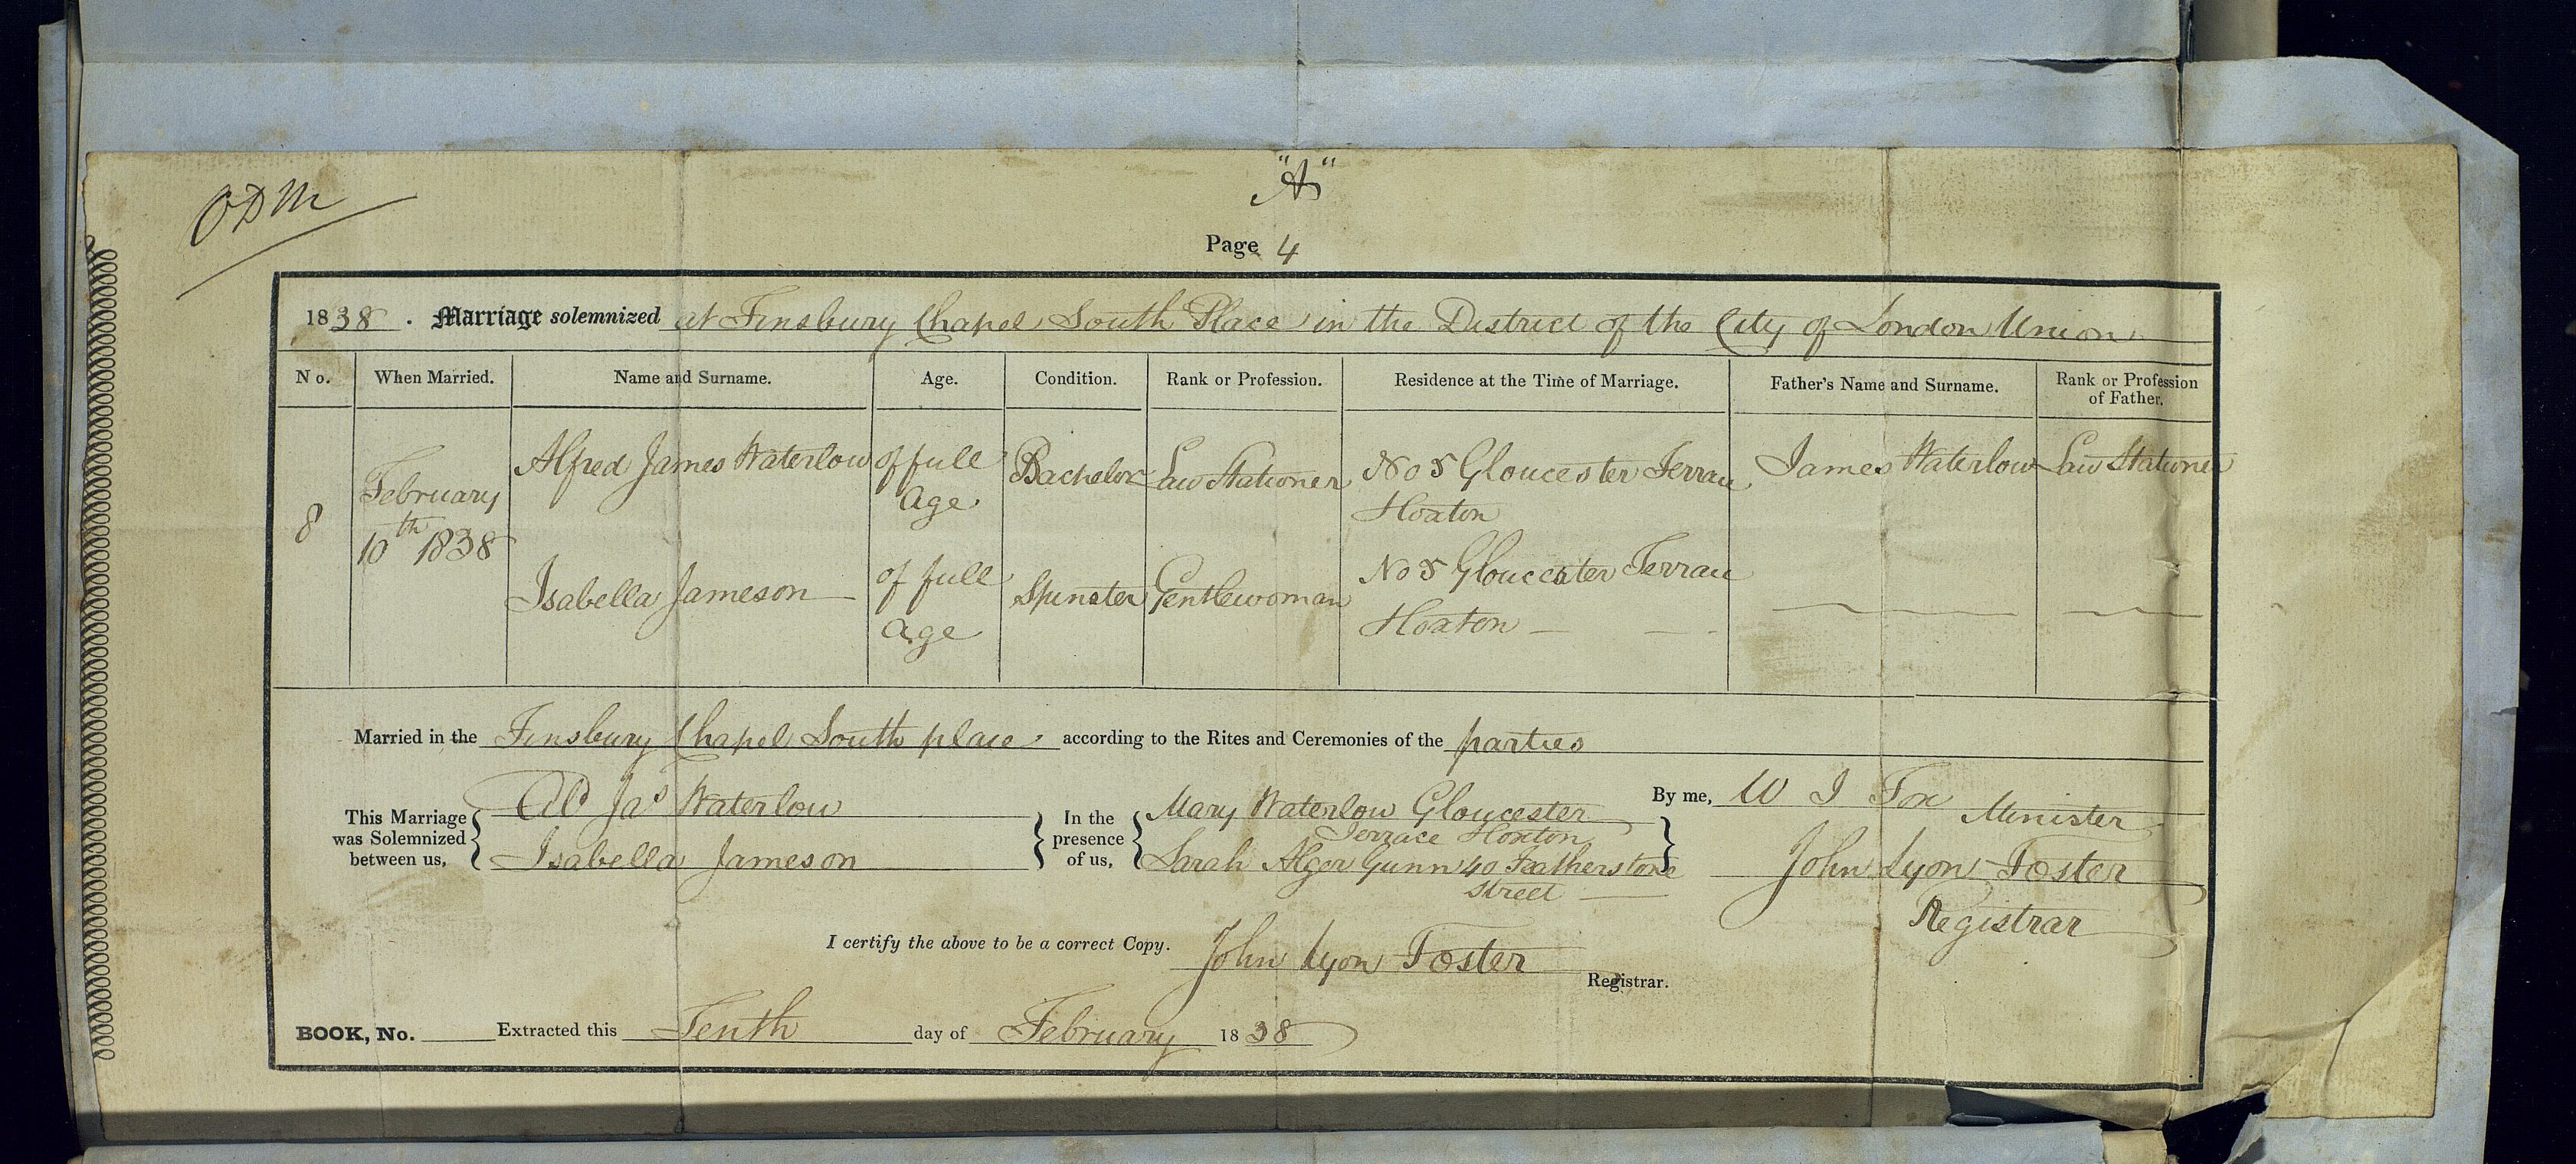 "A"
ODM
Page 4
1838. Marriage solemnized at Finsbury Chapel South Place in the District of the City of London Union
No. When Married. Name and Surname. Age. Condition. Rank or Profession. Residence at the Time of Marriage. Father's Name and Surname. Rank or Profession of Father.
8 February 10th 1838 Alfred James Waterlow of full Age Bachelor Law Stationer No 5 Gloucester Terrace Hoxton James Waterlow Law Stationer
Isabella Jameson of full Age Spinster Gentlewoman No 5 Gloucester Terrace Hoxton
Married in the Finsbury Chapel South place according to the Rites and Ceremonies of the parties
This Marriage was Solemnized between us, Ald Jas Waterlow
Isabella Jameson
In the presence of us, Mary Waterlow Gloucester
Terrace Hoxton
Sarah Alger Gunn 40 Featherstone
Street
By me, W J Fox Minister
John Lyon Foster
Registrar
I certify the above to be a correct Copy. John Lyon Foster
Registrar.
BOOK, No. Extracted this Tenth day of February 1838